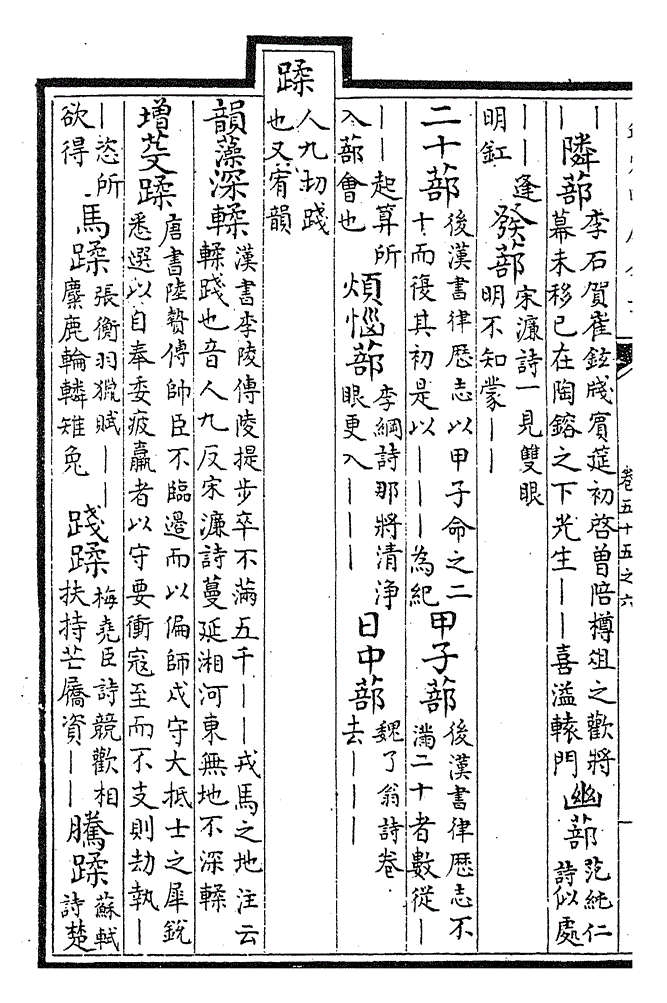 卷五十五之六
｜
｜
隣蔀
李石賀崔鉉牋賓筵初啓曾陪樽俎之歡將
幕未移已在陶鎔之下光生｜｜喜溢轅門
幽蔀
范純仁
詩似處
｜｜逢
明釭
發蔀
宋濂詩一見雙眼
明不知蒙｜｜
二十蔀
後漢書律歷志以甲子命之二
十而復其初是以｜｜｜為紀
甲子蔀
後漢書律歷志不
滿二十者數從｜
｜｜起算所
入蔀會也
煩惱蔀
李綱詩那將清浄
眼更入｜｜｜
日中蔀
魏了翁詩卷
去｜｜｜
蹂
人九切踐
也又宥韻
韻藻深輮
漢書李陵傳陵提步卒不滿五千｜｜戎馬之地注云
輮踐也音人九反宋濂詩蔓延湘河東無地不深輮
增芟蹂
唐書陸贄傳帥臣不臨邊而以偏師戍守大抵士之犀銳
悉選以自奉委疲羸者以守要衝寇至而不支則劫執｜
｜恣所
欲得
馬蹂
張衡羽獵賦｜｜
麋鹿輪轔雉兔
踐蹂
梅堯臣詩競歡相
扶持芒屩資｜｜
騰蹂
蘇軾
詩楚